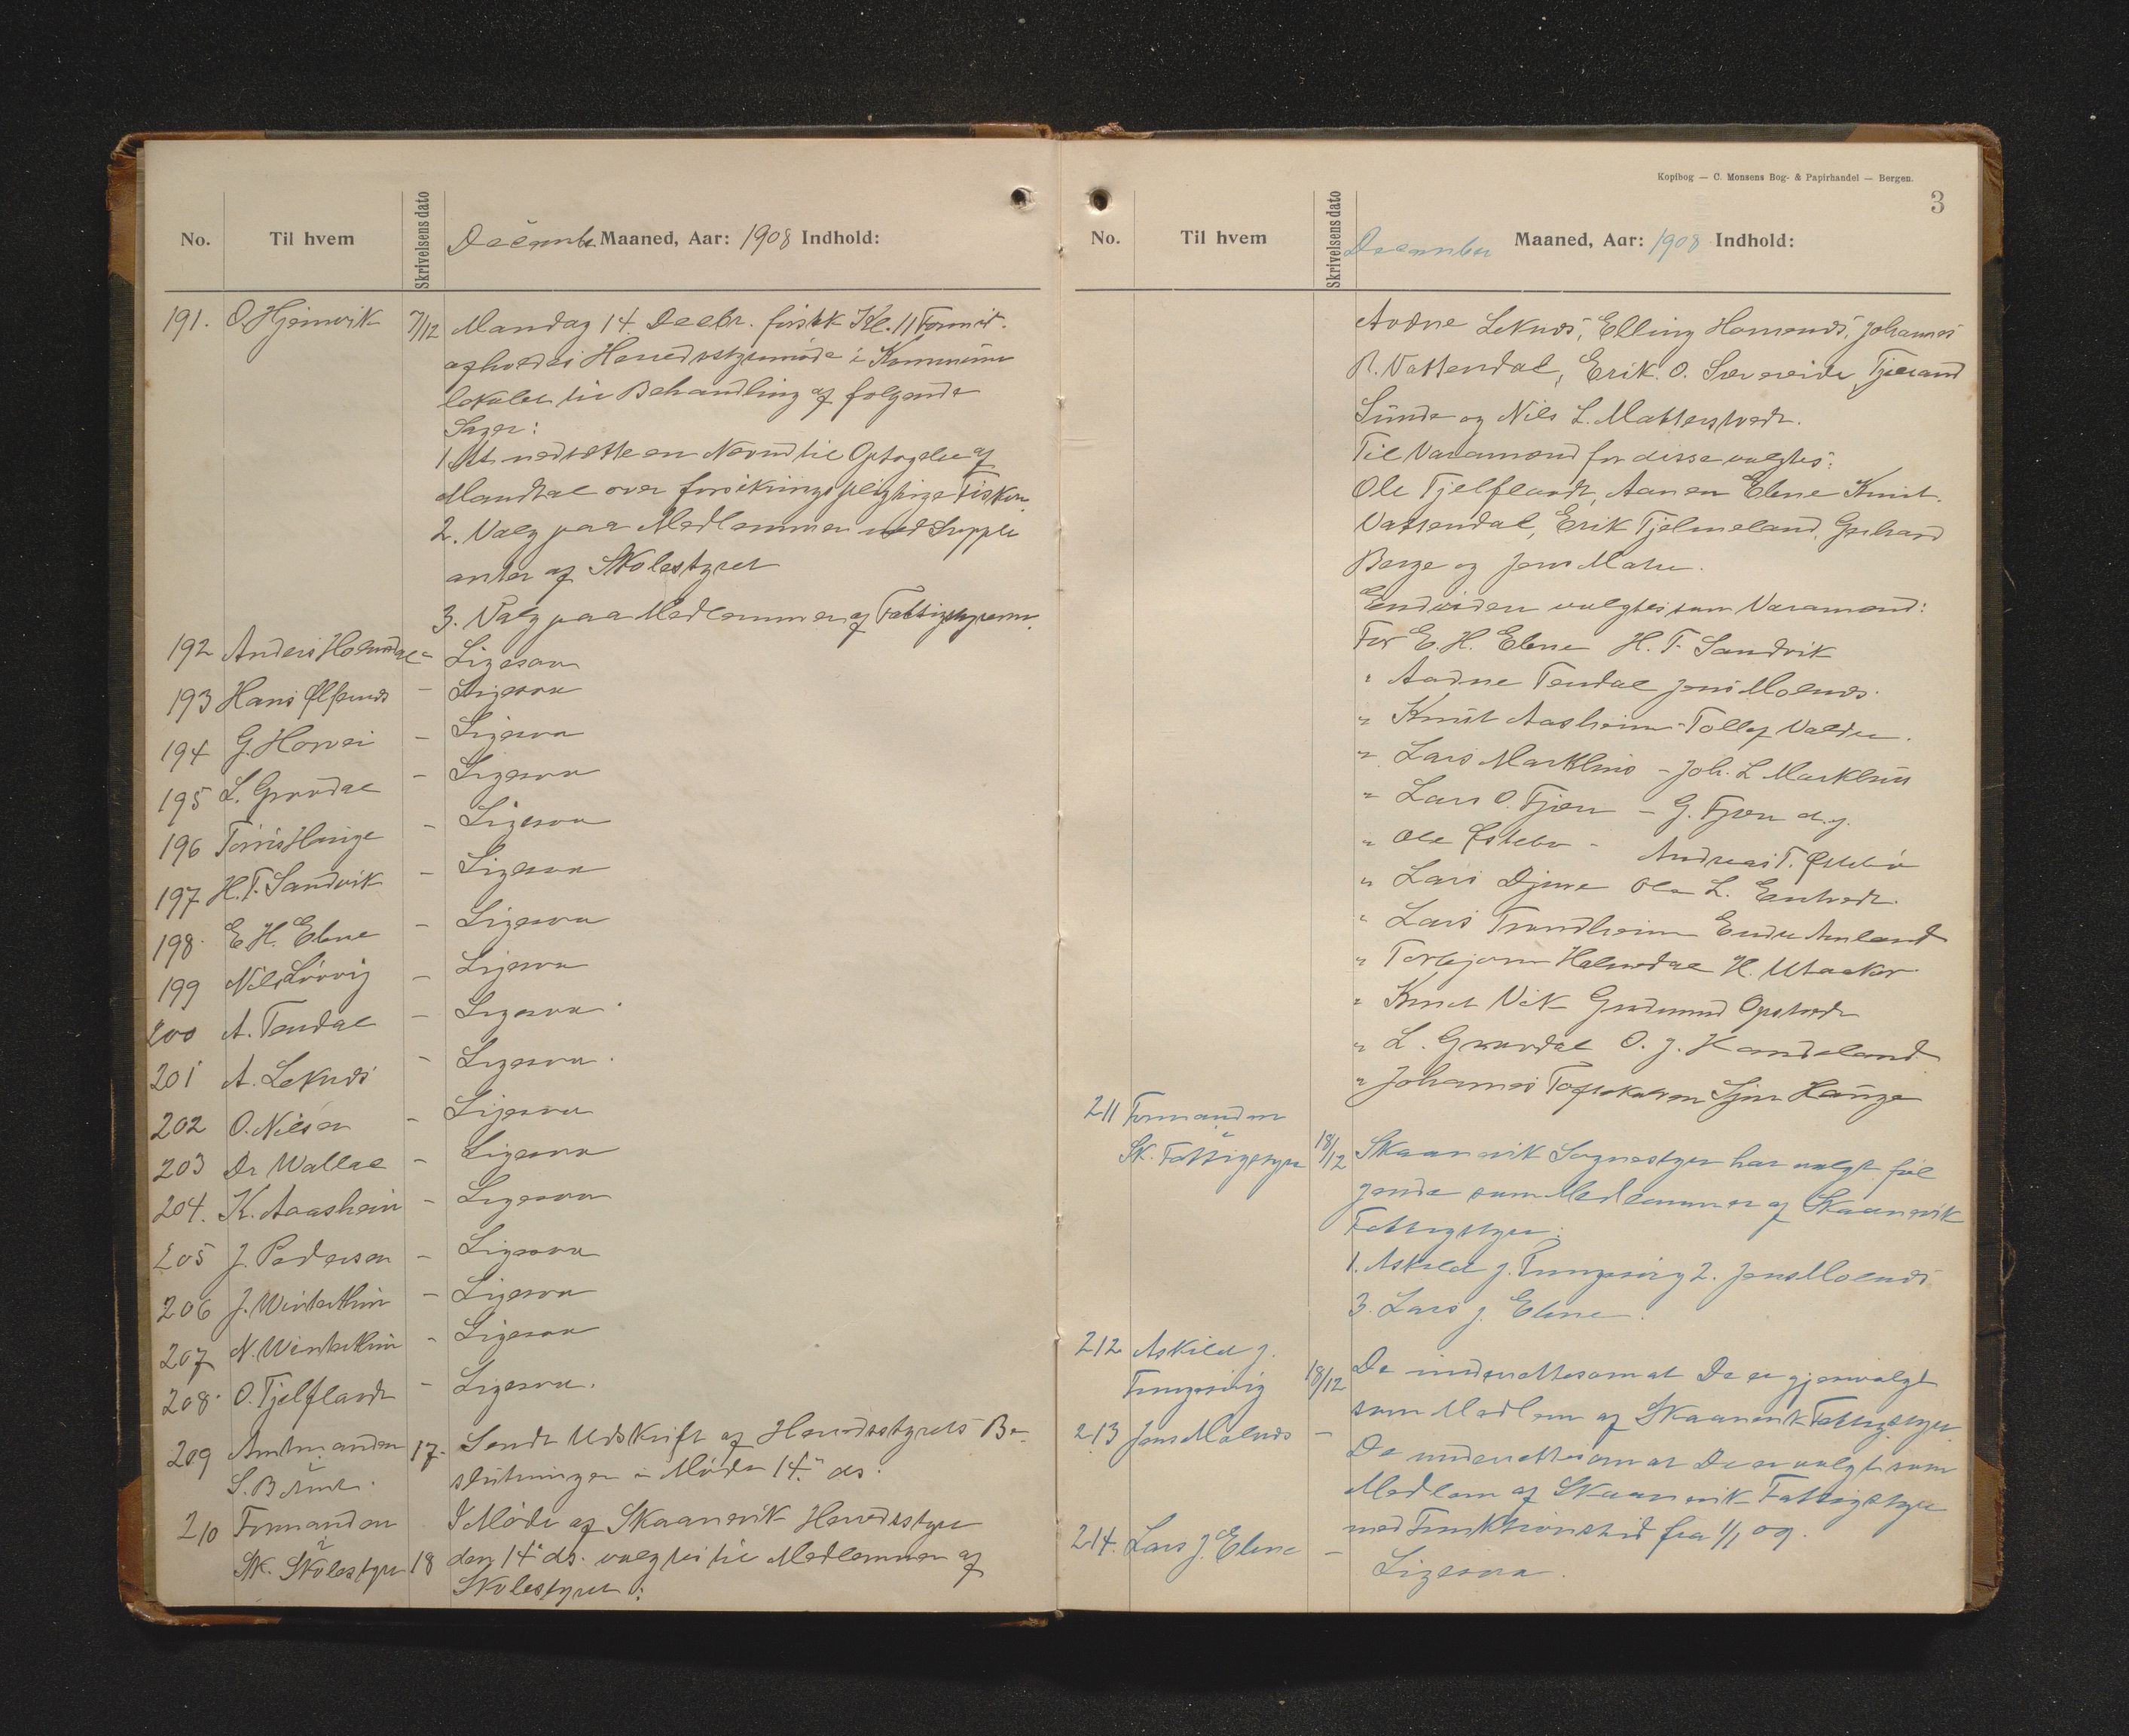 No. Til hvem Skrivelsens dato December Maaned, Aar: 1908 Indhold:
191. O. Hjemvik 7/12 Mandag 14. Decbr. förstk Kl. 11 Formit.
afholdes Herredsstyremöde i Kommune
lokalet til Behandling af følgende
Sager:
1. At nedsætte en Nævnd til Optagelse af
Mandtal over forsikringspligtige Fiskere
2. Valg paa Medlemmer med Supple
anter af Skolestyret
3. Valg paa Medlemmer af Fattigstyrerne.
192 Anders Holmedal - Ligesaa
193 Hans Ølfernes - Ligesaa
194 G. Horvei - Ligesaa
195 L. Grøndal - Ligesaa
196 Torris Hauge - Ligesaa
197 H. T. Sandvik - Ligesaa
198. E. H. Ebne - Ligesaa
199 Nils Lövvig - Ligesaa
200 A. Tendal - Ligesaa.
201 A. Leknes - Ligesaa.
202 O. Nilsen - Ligesaa
203 Dr Wallae - Ligesaa
204. K. Aasheim - Ligesaa
205 J. Pedersen - Ligesaa
206 J. Winterthun - Ligesaa
207 N. Winterthun - Ligesaa
208. O. Tjelflaadt - Ligesaa.
209 Amtmanden 17. Sendt Udskrift af Herredsstyrets Be-
S. B Amt. slutninger i Møde 14. ds.
210 Formanden I Möde af Skaanevik Herredsstyre
i Sk. Skolestyre 18 den 14 ds. valgtes til Medlemmer af
Skolestyret:
Kopibog — C. Monsens Bog- & Papirhandel — Bergen.
3
No. Til hvem Skrivelsens dato December Maaned, Aar: 1908 Indhold:
Aadne Leknes, Elling Hamenes, Johannes
R. Vattendal, Erik O. Sævereide, Tjerand
Sunde og Nils L. Matterstvedt.
Til Varamænd for disse valgtes:
Ole Tjelflaadt, Aanen Ebne Knut
Vattendal, Erik Tjelmeland, Gerhard
Berge og Jens Matre.
Endvidere valgtes som Varamænd:
For E. H. Ebne H. T. Sandvik
" Aadne Tendal Jens Molnes.
" Knut Aasheim - Tollef Valdre.
" Lars Markhus - Joh. L Markhus
" Lars O. Fjæra - G. Fjæra d. y.
" Ole Østebø - Andreas T. Østebö
" Lars Djuve Ole L. Enstvedt.
" Lars Trondheim Endre Amland
" Torbjørn Holmedal H. Utaaker
" Knut Vik Gudmund Opstvedt
" L. Grøndal O. J. Handeland
" Johannes Toftekalven Sjur Hauge
211 Formanden
i Sk. Fattigstyre 18/12 Skaanevik Sognestyre har valgt føl
gende som Medlemmer af Skaanevik
Fattigstyre:
1. Askild J. Tungesvig 2. Jens Molnes
3. Lars J. Ebne.
212 Askild J.
Tungesvig 18/12 De underrettes om at De er gjenvalgt
som Medlem af Skaanevik Fattigstyre
213 Jens Molnes - De underrettes om at De er valgt som
Medlem af Skaanevik Fattigstyre
med Funktionstid fra 1/1 09.
214. Lars J. Ebne - Ligesaa.